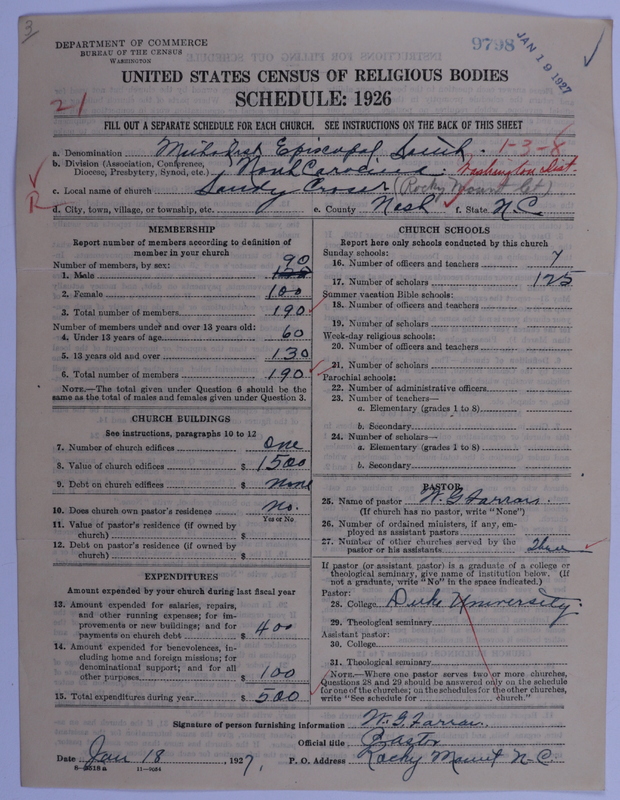 3
DEPARTMENT OF COMMERCE
BUREAU OF THE CENSUS
WASHINGTON
9798
JAN 19 1927
UNITED STATES CENSUS OF RELIGIOUS BODIES
SCHEDULE: 1926
21
FILL OUT A SEPARATE SCHEDULE FOR EACH CHURCH. SEE INSTRUCTIONS ON THE BACK OF THIS SHEET
a. Denomination Methodist Episcopal South. 1-3-8
b. Division (Association, Conference, Diocese, Presbytery, Synod, etc.) North Carolina: Washington Dist.
c. Local name of church Sandy Cross (Rocky Mount Ct)
R
d. City, town, village, or township, etc. e. County Nash f. State N.C.
MEMBERSHIP
Report number of members according to definition of
member in your church
Number of members, by sex: 90
1. Male
2. Female 100
3. Total number of members 190
Number of members under and over 13 years old:
4. Under 13 years of age 60
5. 13 years old and over 130
6. Total number of members 190
NOTE.—The total given under Question 6 should be
same as the total of males and females given under Question 3.
CHURCH BUILDINGS
See instructions, paragraphs 10 to 12
7. Number of church edifices One
8. Value of church edifices $ 1500
9. Debt on church edifices $ none
10. Does church own pastor's residence no.
Yes or No
11. Value of pastor's residence (if owned by
church) $
12. Debt on pastor's residence (if owned by
church) $
EXPENDITURES
Amount expended by your church during last fiscal year
13. Amount expended for salaries, repairs,
and other running expenses; for im-
provements or new buildings; and for
payments on church debt $ 400
14. Amount expended for benevolences, in-
cluding home and foreign missions; for
denominational support; and for all
other purposes $ 100
15. Total expenditures during year $ 500
CHURCH SCHOOLS
Report here only schools conducted by this church
Sunday schools:
16. Number of officers and teachers 7
17. Number of scholars 125
Summer vacation Bible schools:
18. Number of officers and teachers
19. Number of scholars
Week-day religious schools:
20. Number of officers and teachers
21. Number of scholars
Parochial schools:
22. Number of administrative officers
23. Number of teachers—
a. Elementary (grades 1 to 8)
b. Secondary
24. Number of scholars—
a. Elementary (grades 1 to 8)
b. Secondary
PASTOR
25. Name of pastor W. G. Farrar.
(If church has no pastor, write "None")
26. Number of ordained ministers, if any, em-
ployed as assistant pastors
27. Number of other churches served by the
pastor or his assistants Three
If pastor (or assistant pastor) is a graduate of a college or
theological seminary, give name of institution below. (If
not a graduate, write "No" in the space indicated.)
Pastor:
28. College Duke University.
29. Theological seminary
Assistant pastor:
30. College
31. Theological seminary
NOTE.—Where one pastor serves two or more churches,
Questions 28 and 29 should be answered only on the schedule
for one of the churches; on the schedules for the other churches,
write "See schedule for church."
Signature of person furnishing information W. G. Farrar.
Official title Pastor
Date Jan 18, 1927, P. O. Address Rocky Mount N.C.
8—3518a 11—9084